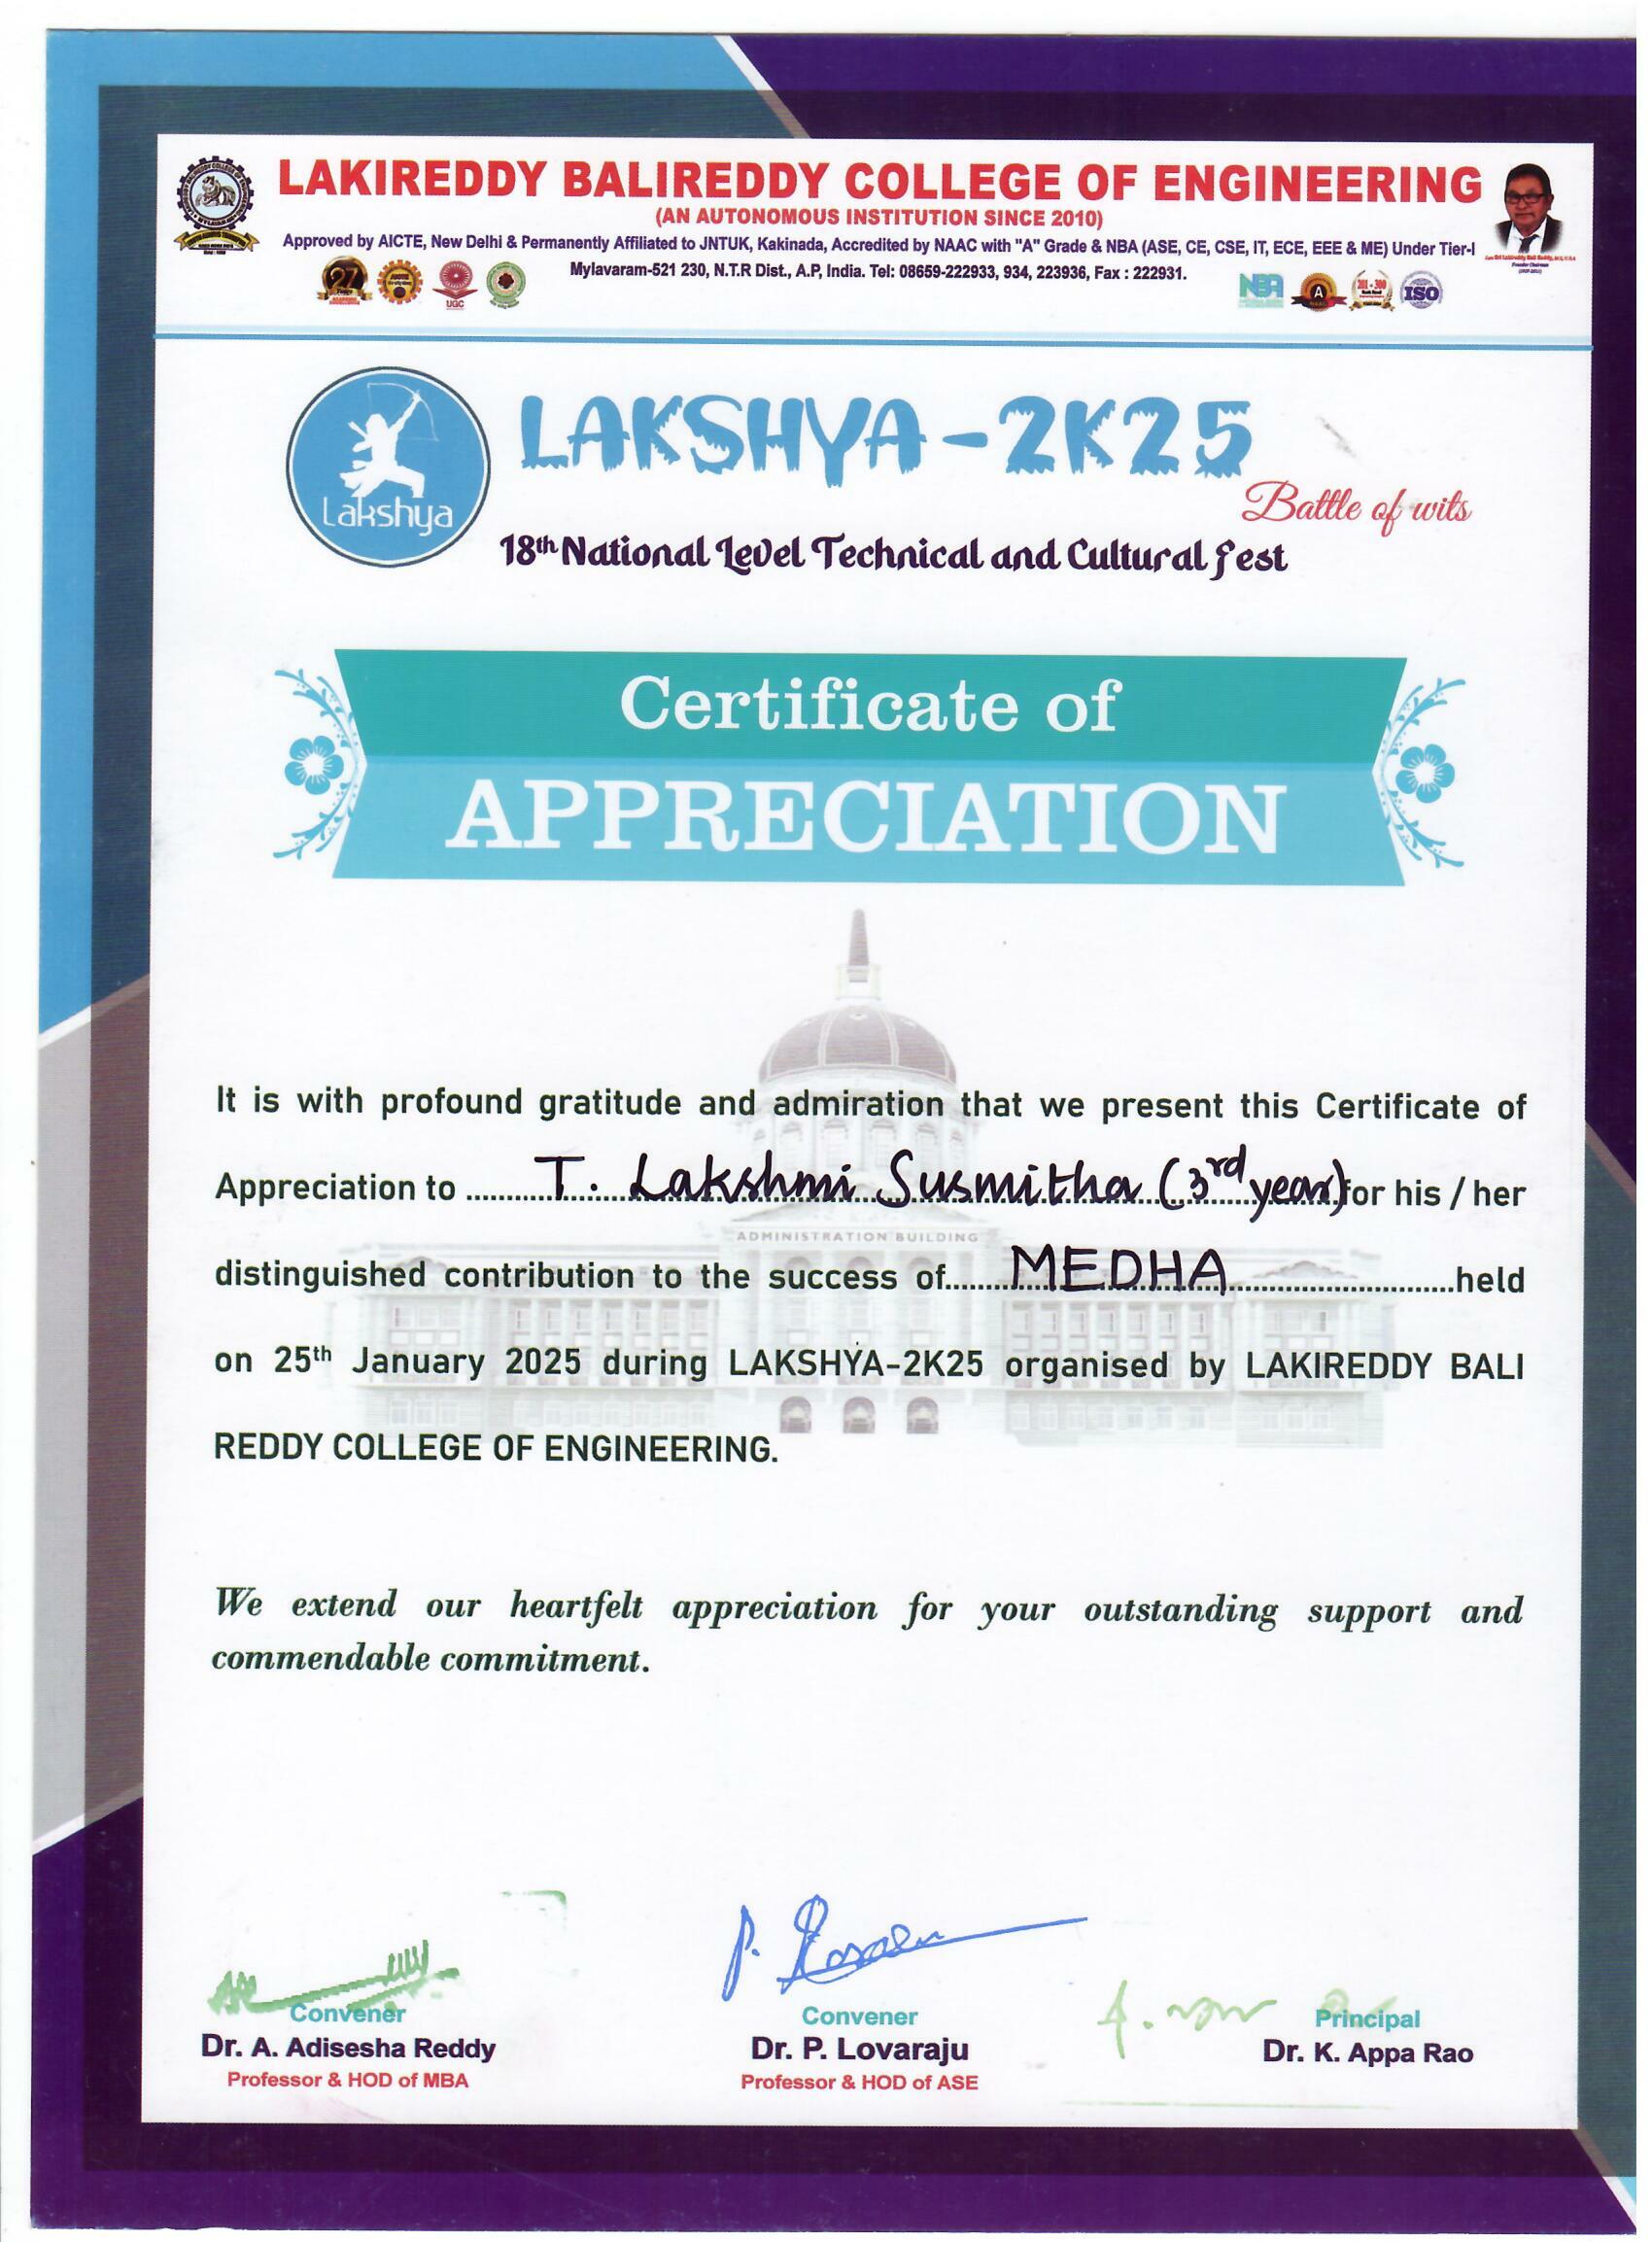 LAKIREDDY BALIREDDY COLLEGE OF ENGINEERING
(AN AUTONOMOUS INSTITUTION SINCE 2010)
Approved by AICTE, New Delhi & Permanently Affiliated to JNTUK, Kakinada, Accredited by NAAC with "A" Grade & NBA (ASE, CE, CSE, IT, ECE, EEE & ME) Under Tier-I
Mylavaram-521 230, N.T.R Dist., A.P, India. Tel: 08659-222933, 934, 223936, Fax : 222931.
27
UGC
NBA
A
201 - 300
ISO
Lakshya
LAKSHYA-2K25
Battle of wits
18th National Level Technical and Cultural Fest
Certificate of
APPRECIATION
It is with profound gratitude and admiration that we present this Certificate of
Appreciation to ............T. Lakshmi Susmitha (3rd year)for his / her
ADMINISTRATION BUILDING
distinguished contribution to the success of.......MEDHA.......................held
on 25th January 2025 during LAKSHYA-2K25 organised by LAKIREDDY BALI
REDDY COLLEGE OF ENGINEERING.
We extend our heartfelt appreciation for your outstanding support and
commendable commitment.
Convener
Dr. A. Adisesha Reddy
Professor & HOD of MBA
Convener
Dr. P. Lovaraju
Professor & HOD of ASE
Principal
Dr. K. Appa Rao